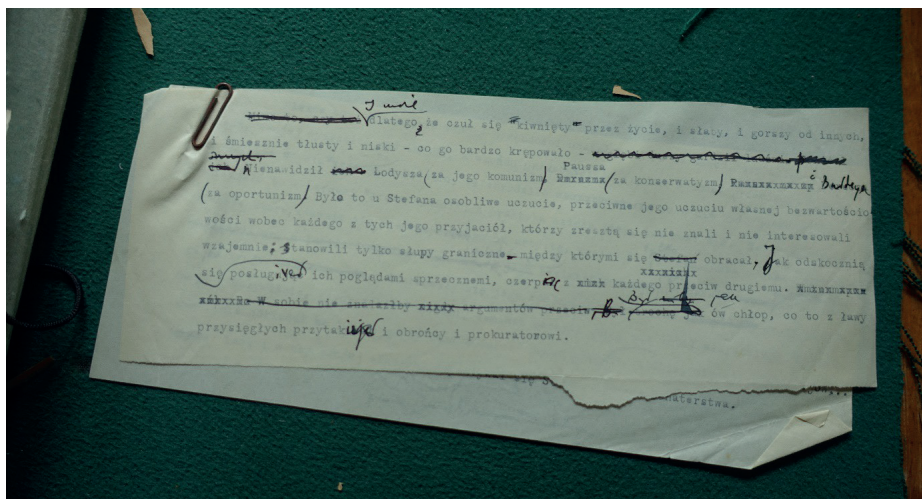 I może
dlatego, że czuł się "kiwnięty" przez życie, i słaby, i gorszy od innych,
i śmiesznie tłusty i niski - co go bardzo krępowało -
Nienawidził Łodysza (za jego komunizm) Pausza (za konserwatyzm) i
(za oportunizm) Było to u Stefana osobliwe uczucie, przeciwne jego uczuciu własnej bezwartościo
wości wobec każdego z tych jego przyjaciół, którzy zresztą się nie znali i nie interesowali
wzajemnie; stanowili tylko słupy graniczne - między którymi się Stefan obracał, Jak odskocznią
się posługiwał ich poglądami sprzecznemi, czerpiąc z każdego przeciw drugiemu.
W sobie nie znalazłby argumentów Był jak ten ów chłop, co to z ławy
przysięgłych przytakiwał i obrońcy i prokuratorowi.
naterstwa.